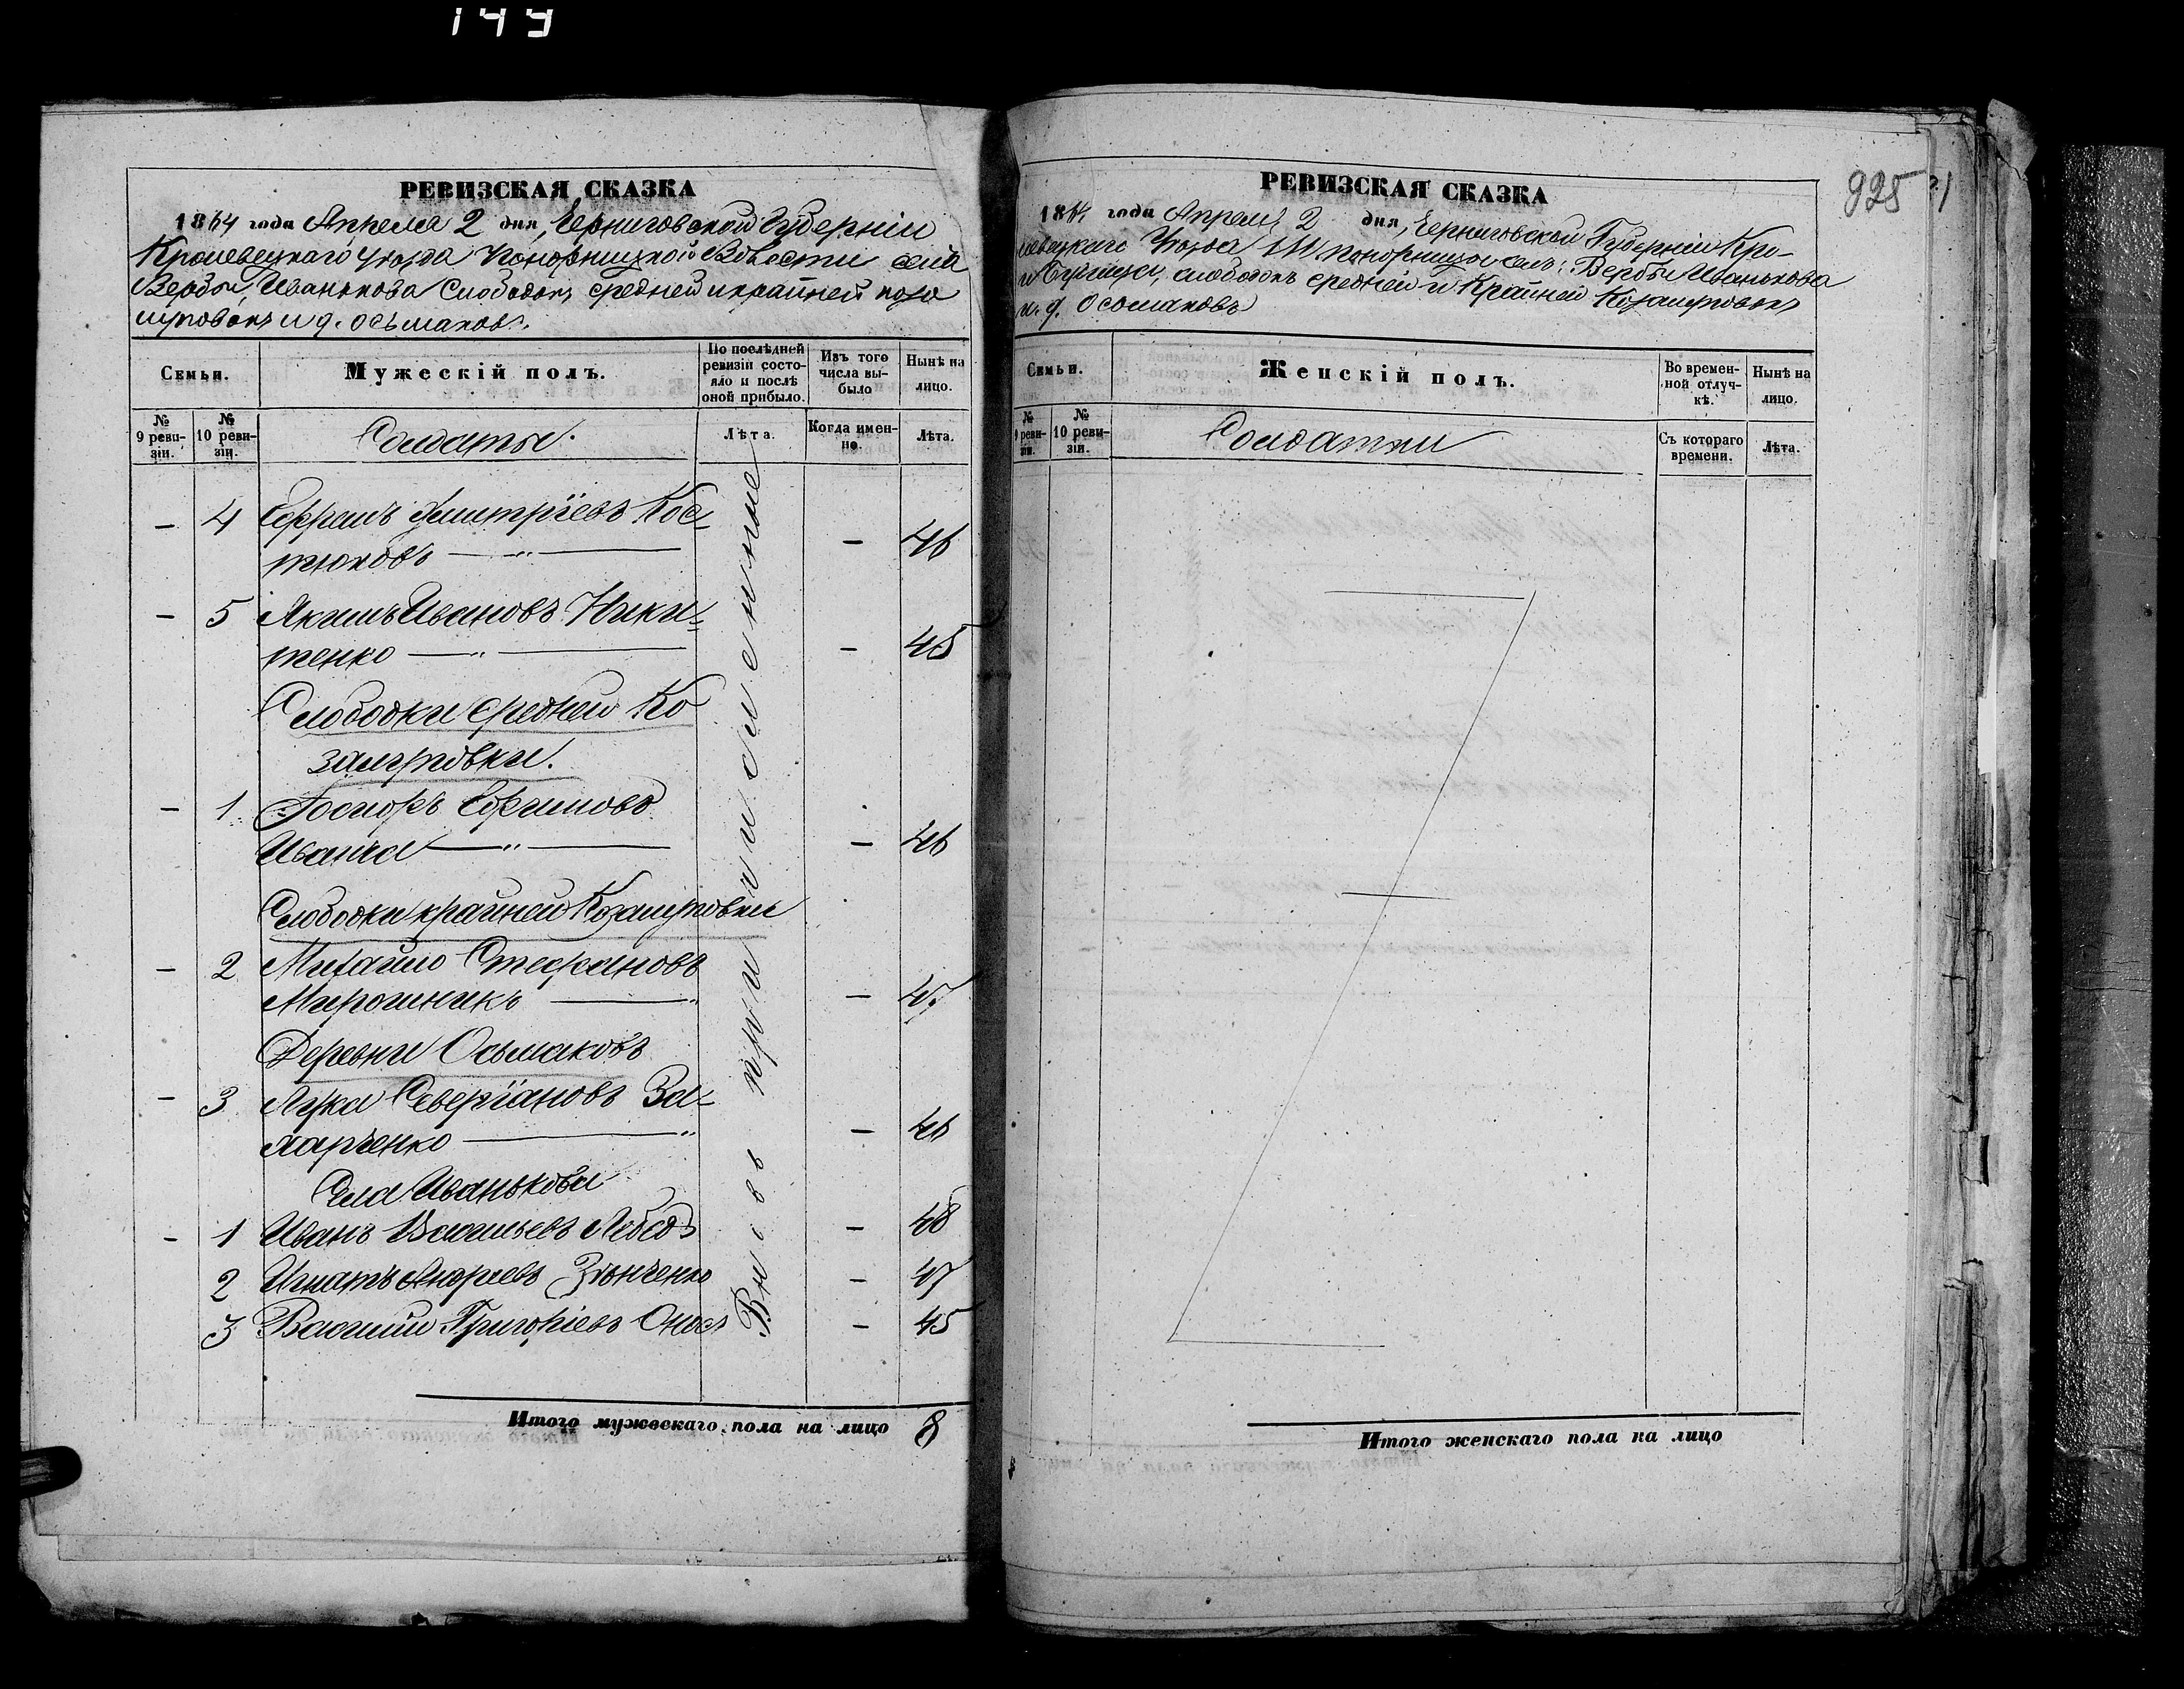 149
РЕВИЗСКАЯ СКАЗКА
1864 года Апреля 2 дня, Черниговской Губерніи
Кролевецкаго Уѣзда Понорницкой Волости села
Вербы, Иванькова Слободокъ средней и крайней коза
цировокъ и д. Осьмаковъ.
Семьи.
Мужескій полъ.
По послѣдней ревизіи состояло и послѣ оной прибыло.
Изъ того числа выбыло
Нынѣ на лицо.
№ 9 ревизіи.
№ 10 ревизіи.
Солдаты.
Лѣта.
Когда именно.
Лѣта.
Вновь причисленные
— 4 Ефремъ Дмитріевъ Кос-
тюковъ — „ — — 46
— 5 Якимъ Ивановъ Ники-
тенко — „ — — 45
Слободки средней Ко
— 1 Ефимовъ
— „ — — 46
Слободки крайней
— 2 Михайло Стефановъ
Мирошникъ — „ — 47
Деревни Осьмаковъ
— 3 Лука Северіановъ За-
харченко — „ — 46
Села Иванькова
— 1 Иванъ Васильевъ — 48
2 Игнатъ Андреевъ — 47
3 Василій Григоріевъ — 45
Итого мужескаго пола на лицо 8
925
РЕВИЗСКАЯ СКАЗКА
1864 года Апреля 2 дня, Черниговской Губерніи Кро-
левецкаго Уѣзда Вербы Иванькова
слободокъ средней и Крайней
и д. Осьмаковъ
Семьи.
Женскій полъ.
Во временной отлучкѣ.
Нынѣ на лицо.
№ 9 ревизіи.
№ 10 ревизіи.
Солдатки
Съ котораго времени.
Лѣта.
Итого женскаго пола на лицо